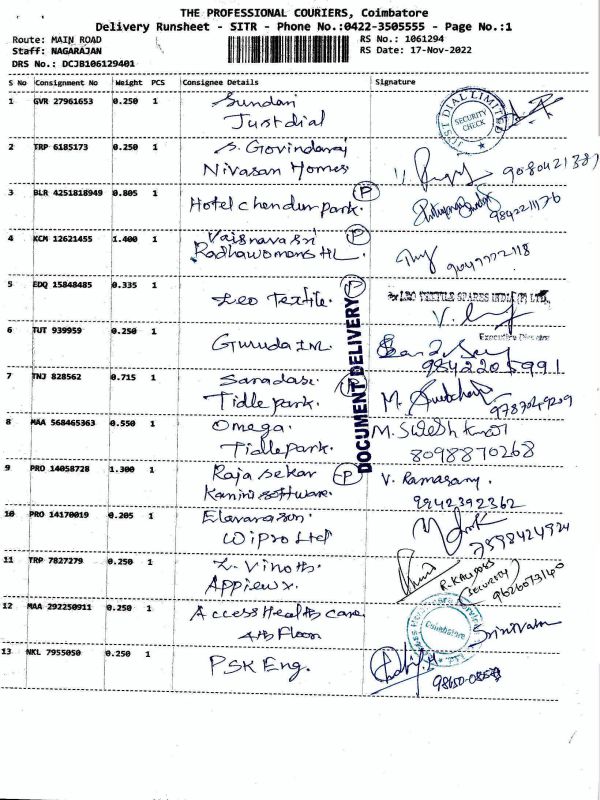 THE PROFESSIONAL COURIERS, Coimbatore
Delivery Runsheet - SITR - Phone No.:0422-3505555 - Page No.:1
Route: MAIN ROAD RS No.: 1061294
Staff: NAGARAJAN RS Date: 17-Nov-2022
DRS No.: DCJB106129401
S No Consignment No Weight PCS Consignee Details Signature
1 GVR 27961653 0.250 1 Sundari
Justdial
JUST DIAL LIMITED SECURITY CHECK
2 TRP 6185173 0.250 1 S. Govindaraj
Nivasan Homes
3 BLR 4251818949 0.805 1 Hotel Chendur park. P
4 KCM 12621455 1.400 1 Vaisnava sri P
Radhawomans HL
5 EDQ 15848485 0.335 1 Leo Textile. P
LEO TEXTILE SPARES INDIA (P) LTD.
Executive Director
6 TUT 939959 0.250 1
9842205991
7 TNJ 828562 0.715 1 P
Tidle park. 9787049209
DOCUMENT DELIVERY
8 MAA 568465363 0.550 1 Omega. M. Suresh Kumar
Tidle park. 8098870268
9 PRO 14058728 1.300 1 Raja sekar P V. Ramasamy.
Kanini software. 9942392362
10 PRO 14170019 0.205 1
Wipro Ltd 7598424924
11 TRP 7827279 0.250 1 L. Vinoth.
(SECURITY)
12 MAA 292250911 0.250 1 Access Health care
4th Floor
Coimbatore
13 NKL 7955050 0.250 1 PSK Eng.